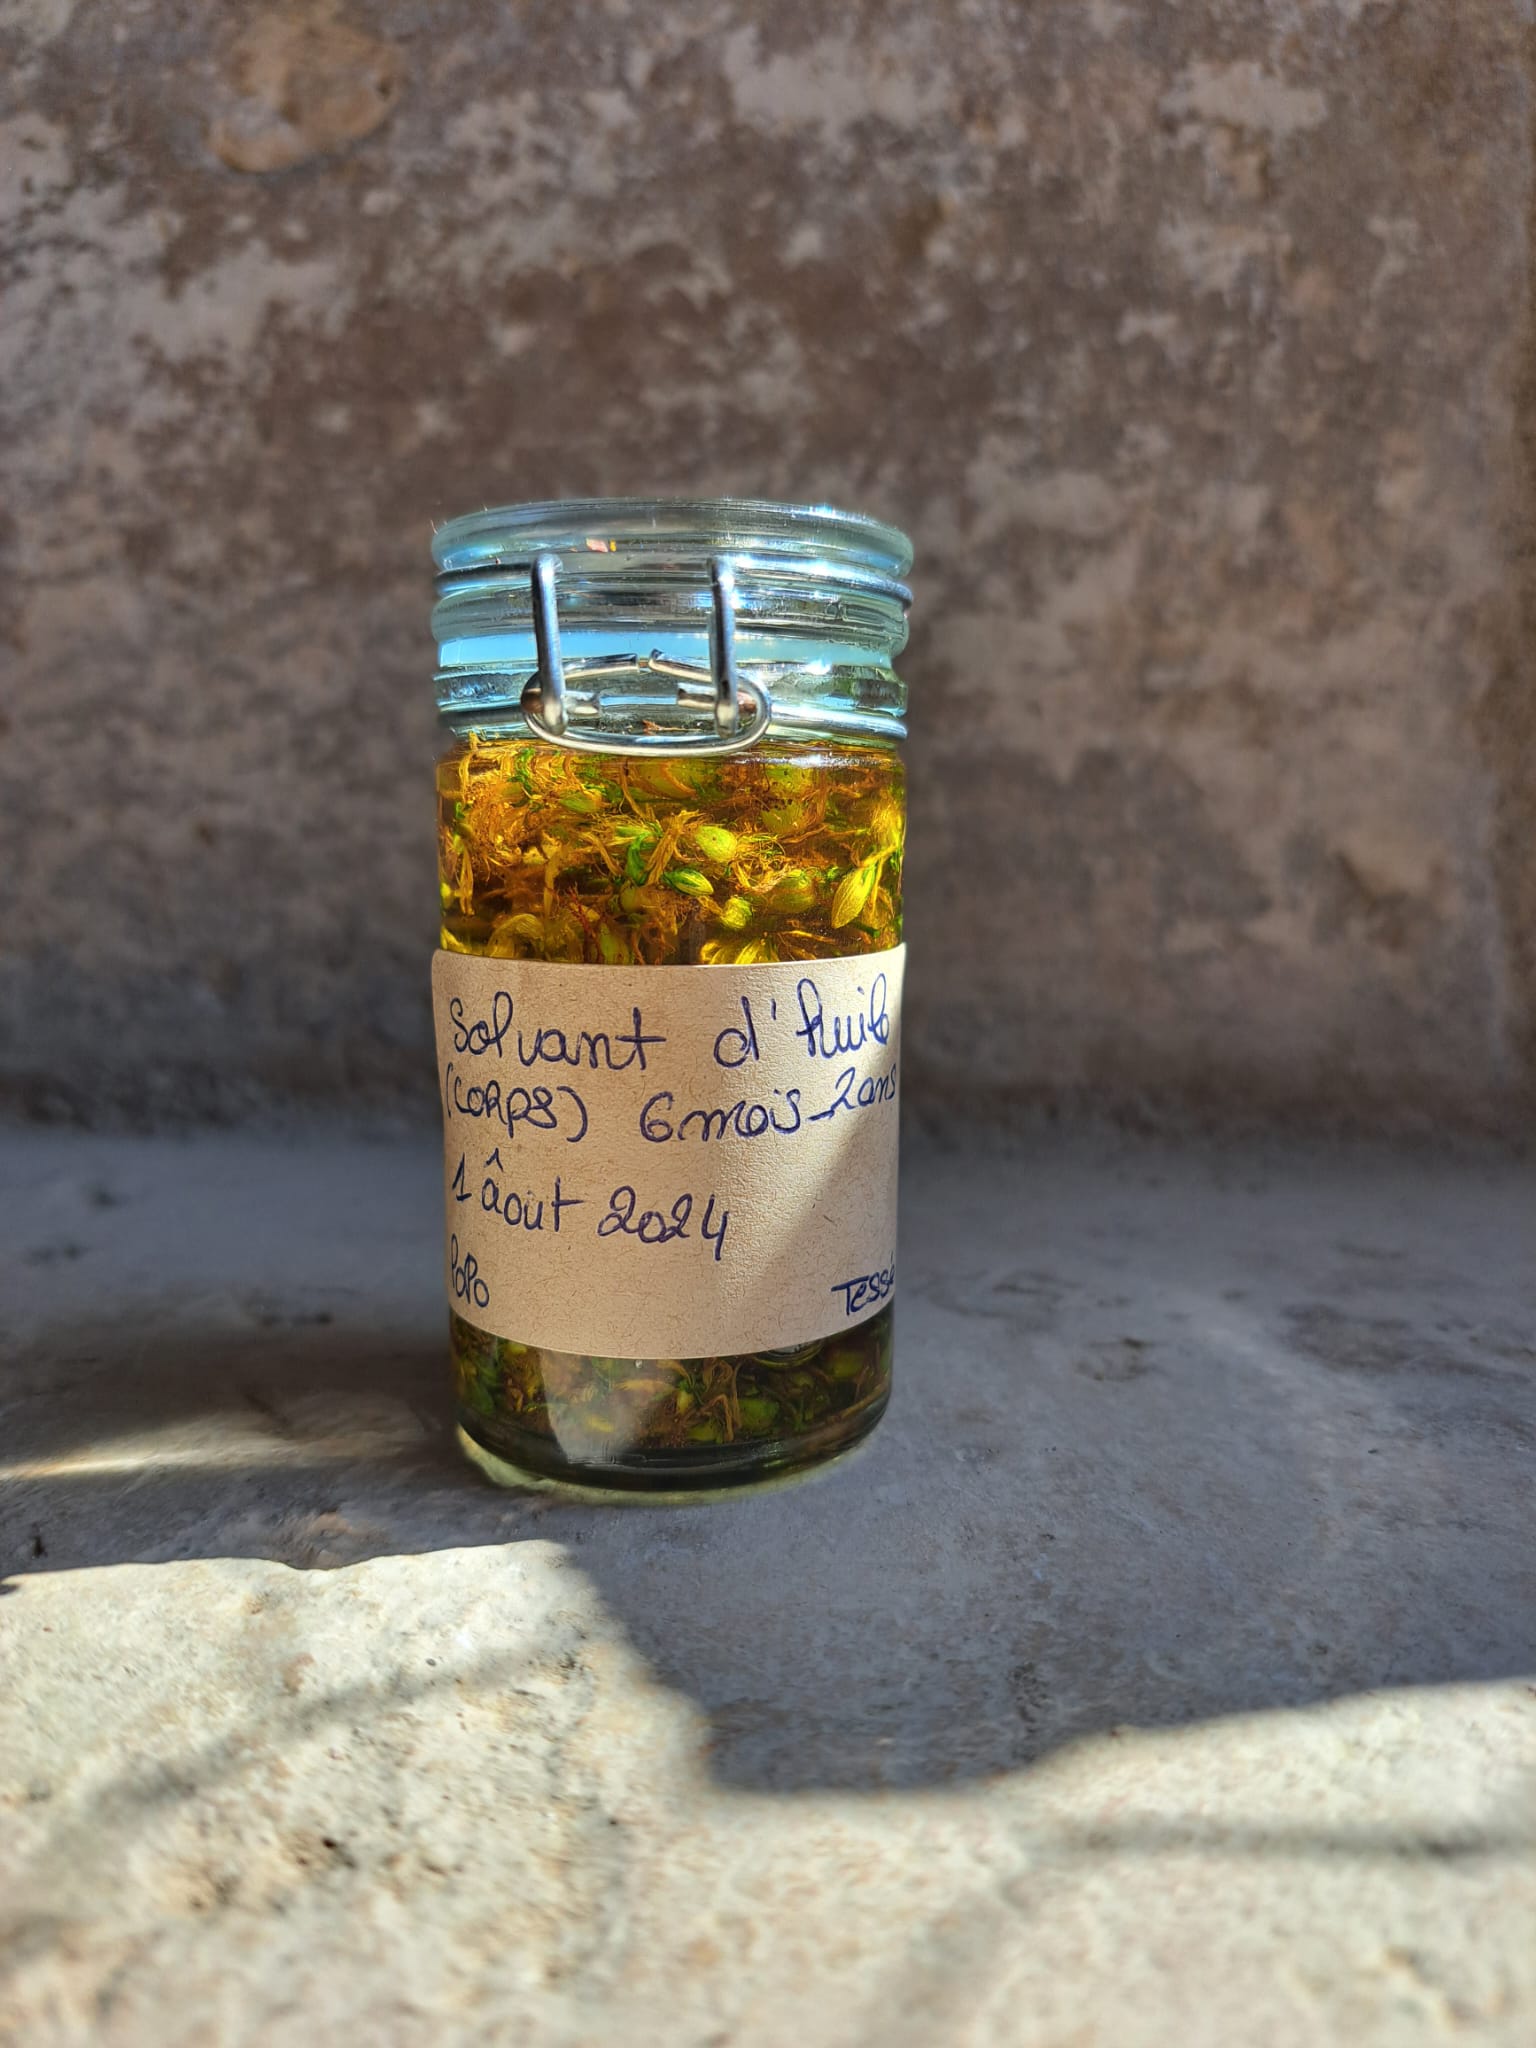 Solvant d'huile
(CORPS) 6 mois - 2 ans
1 âout 2024
PoPo Tessé